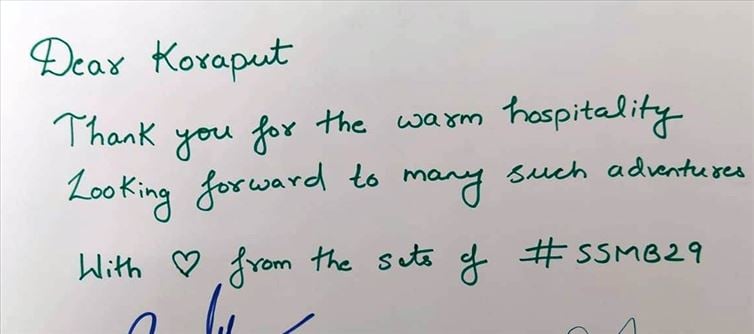 Dear Koraput
Thank you for the warm hospitality
Looking forward to many such adventures
With ♡ from the sets of #SSMB29